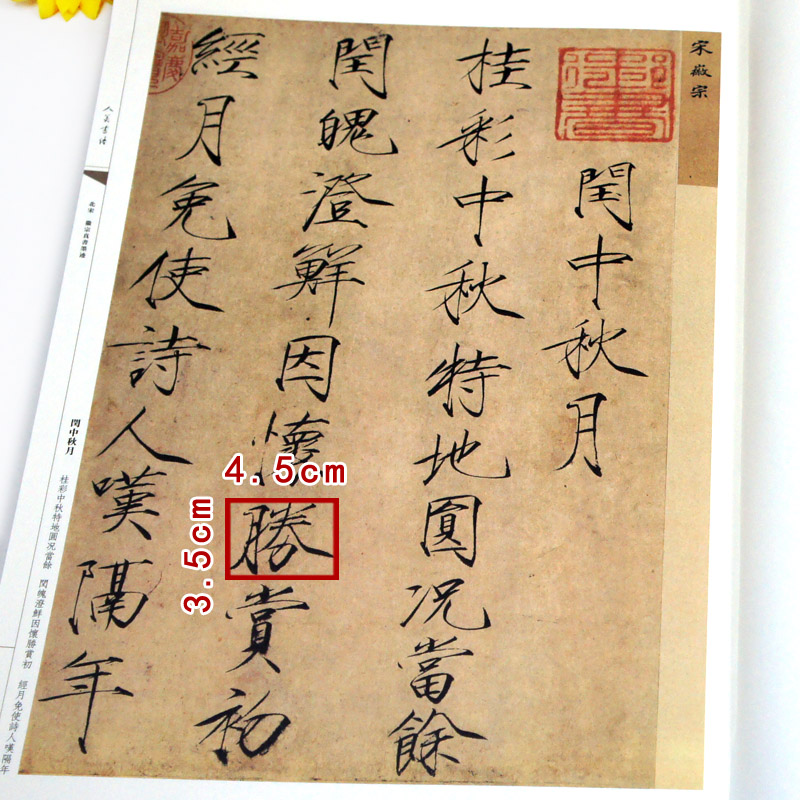 宋徽宗
閏中秋月
桂彩中秋特地圓況當餘
閏魄澄鮮因懷勝賞初
經月免使詩人嘆隔年
4.5cm
3.5cm
人美書譜
北宋 徽宗真書墨迹
閏中秋月
桂彩中秋特地圓況當餘 閏魄澄鮮因懷勝賞初 經月免使詩人嘆隔年